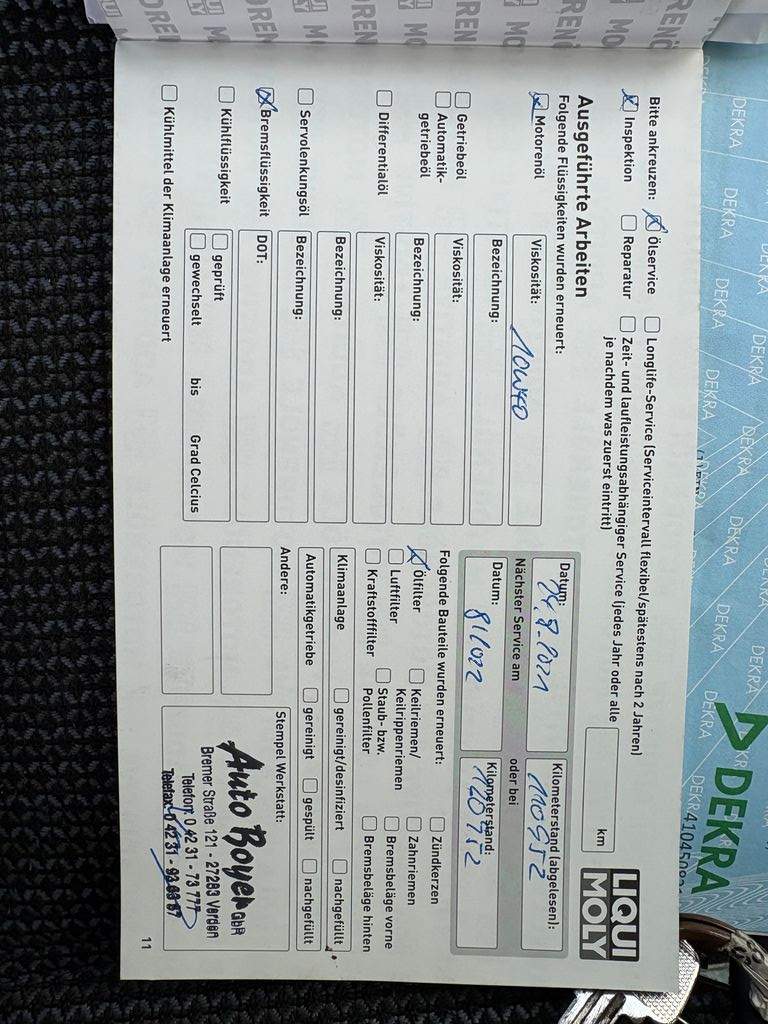 Bitte ankreuzen: Ölservice Longlife-Service (Serviceintervall flexibel/spätestens nach 2 Jahren)
Inspektion Reparatur Zeit- und laufleistungsabhängiger Service (jedes Jahr oder alle km
je nachdem was zuerst eintritt)
LIQUI
MOLY
Ausgeführte Arbeiten
Folgende Flüssigkeiten wurden erneuert:
Motorenöl Viskosität: 10W40
Bezeichnung:
Getriebeöl Viskosität:
Automatik-
getriebeöl
Bezeichnung:
Differentialöl Viskosität:
Bezeichnung:
Servolenkungsöl Bezeichnung:
Bremsflüssigkeit DOT:
Kühlflüssigkeit geprüft
gewechselt bis Grad Celcius
Kühlmittel der Klimaanlage erneuert
Datum: Kilometerstand (abgelesen):
2021 110952
Nächster Service am oder bei
Datum: 8/2022 Kilometerstand: 120952
Folgende Bauteile wurden erneuert:
Ölfilter Keilriemen/ Zündkerzen
Keilrippenriemen Zahnriemen
Luftfilter Staub- bzw. Bremsbeläge vorne
Kraftstofffilter Pollenfilter Bremsbeläge hinten
Klimaanlage gereinigt/desinfiziert nachgefüllt
Automatikgetriebe gereinigt gespült nachgefüllt
Andere: Stempel Werkstatt:
Auto Boyer GbR
Bremer Straße 121 - 27283 Verden
Telefon: 0 42 31 - 73 777
Telefax: 0 42 31 - 93 03 87
11
DEKRA
DEKRA